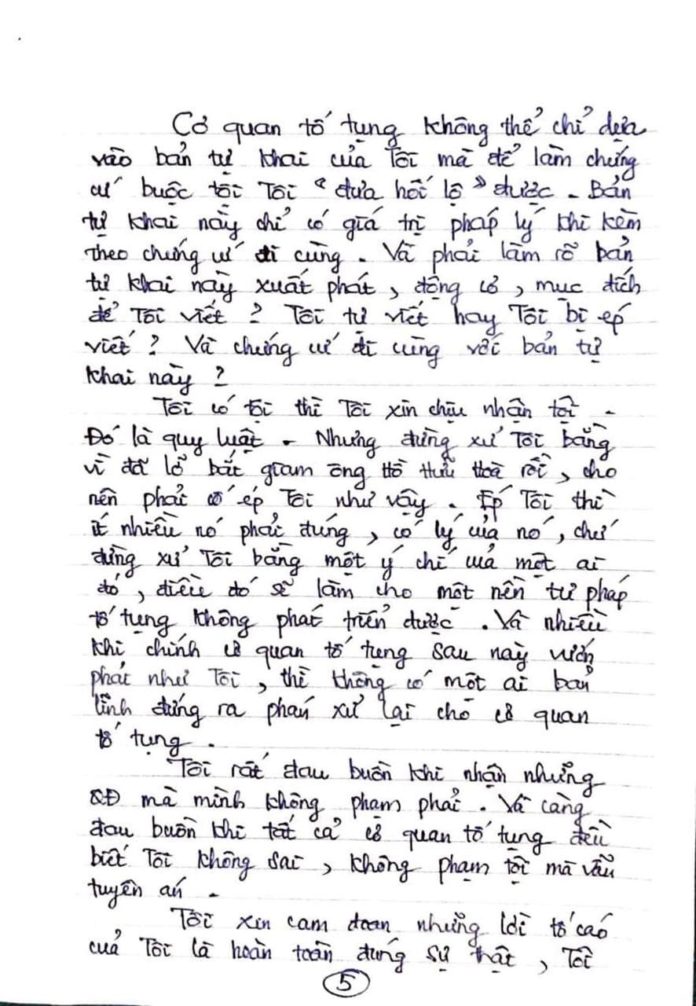 Cơ quan tố tụng không thể chỉ dựa
vào bản tự khai của Tôi mà để làm chứng
cứ buộc tội Tôi “đưa hối lộ” được. Bản
tự khai này chỉ có giá trị pháp lý khi kèm
theo chứng cứ đi cùng. Và phải làm rõ bản
tự khai này xuất phát, động cơ, mục đích
để Tôi viết? Tôi tự viết hay Tôi bị ép
viết? Và chứng cứ đi cùng với bản tự
khai này?
Tôi có tội thì Tôi xin chịu nhận tội.
Đó là quy luật. Nhưng đừng xử Tôi bằng
vì đã lỡ bắt giam ông Hồ Hữu Hoà rồi, cho
nên phải cố ép Tôi như vậy. Ép Tôi thì
ít nhiều nó phải đúng, có lý của nó, chứ
đừng xử Tôi bằng một ý chí của một ai
đó, điều đó sẽ làm cho một nền tư pháp
tố tụng không phát triển được. Và nhiều
khi chính cơ quan tố tụng sau này vướng
phải như Tôi, thì không có một ai bản
lĩnh đứng ra phán xử lại cho cơ quan
tố tụng.
Tôi rất đau buồn khi nhận những
QĐ mà mình không phạm phải. Và càng
đau buồn khi tất cả cơ quan tố tụng đều
biết Tôi không sai, không phạm tội mà vẫn
tuyên án.
Tôi xin cam đoan những lời tố cáo
của Tôi là hoàn toàn đúng sự thật, Tôi
5